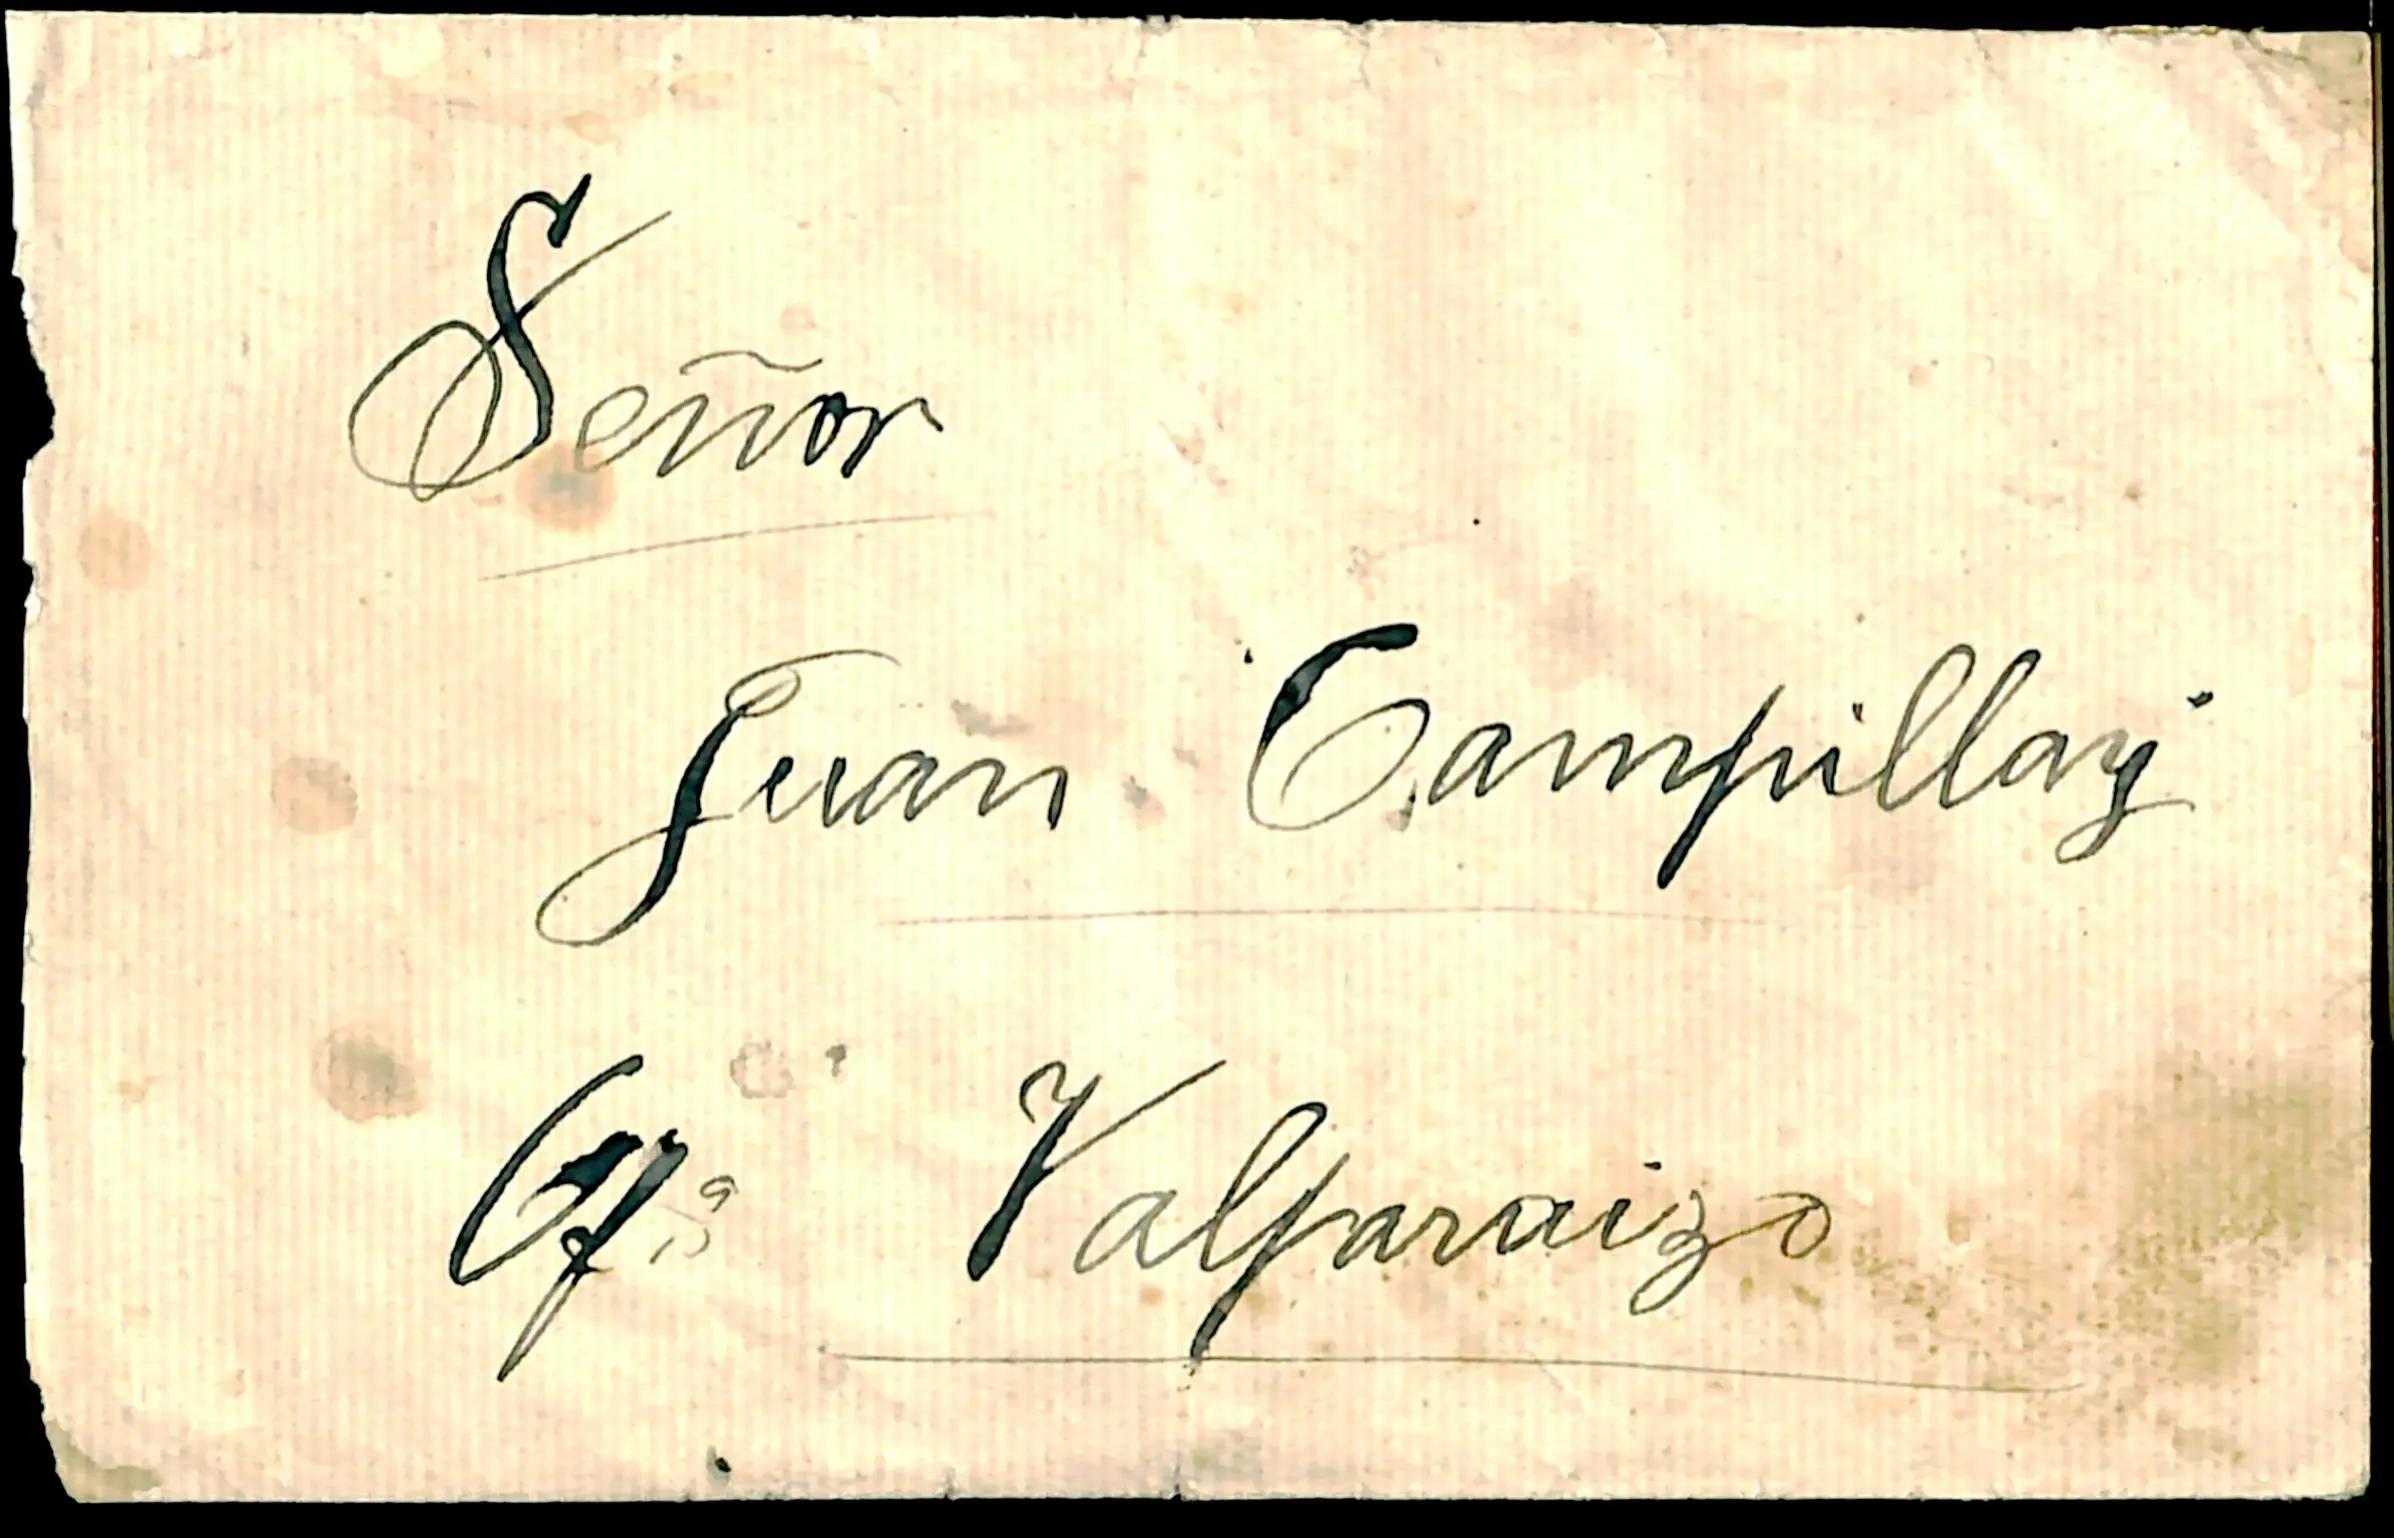 Señor
Juan Campillay
Ofª Valparaizo